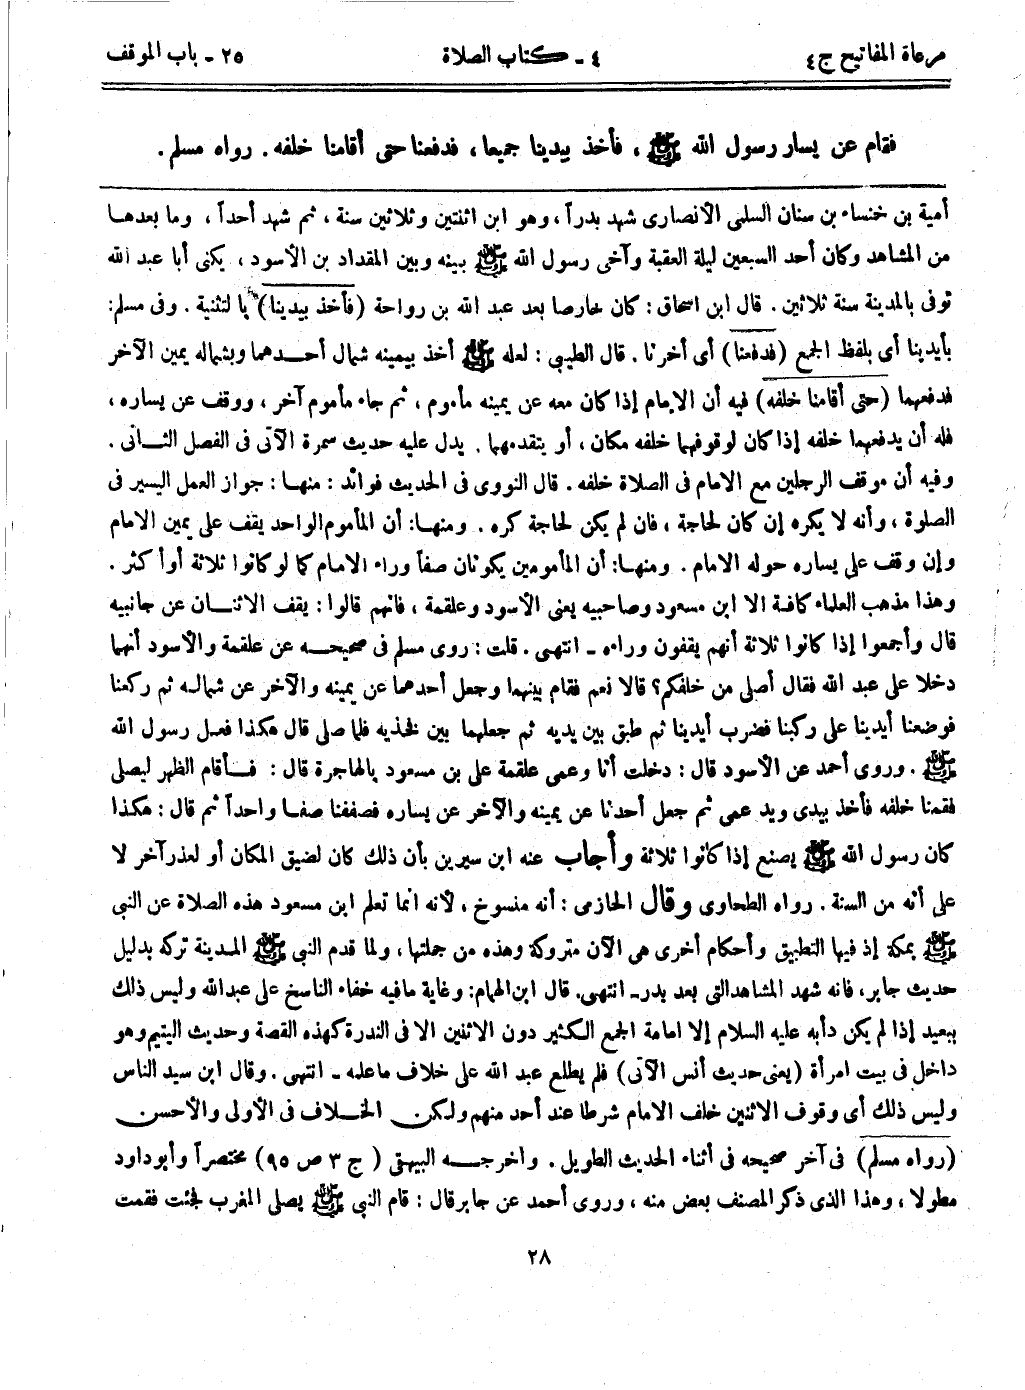 مرعاة المفاتيح ج٤ ٤ - كتاب الصلاة ٢٥ - باب الموقف
فقام عن يسار رسول الله ﷺ ، فأخذ بيدينا جميعا ، فدفعنا حتى أقامنا خلفه . رواه مسلم .
أمية بن خنساء بن سنان السلمى الأنصارى شهد بدراً ، وهو ابن اثنتين وثلاثين سنة ، ثم شهد أحداً ، وما بعدها
من المشاهد وكان أحد السبعين ليلة العقبة وآخى رسول الله ﷺ بينه وبين المقداد بن الأسود ، يكنى أبا عبد الله
توفى بالمدينة سنة ثلاثين . قال ابن اسحاق : كان خارصا بعد عبد الله بن رواحة (فأخذ بيدينا) بالتثنية . وفى مسلم :
بأيدينا أى بلفظ الجمع (فدفعنا) أى أخرنا . قال الطيبى : لعله ﷺ أخذ بيمينه شمال أحدهما وبشماله يمين الآخر
فدفعهما (حتى أقامنا خلفه) فيه أن الامام إذا كان معه عن يمينه مأموم ، ثم جاء مأموم آخر ، ووقف عن يساره ،
فله أن يدفعهما خلفه إذا كان لوقوفهما خلفه مكان ، أو يتقدمهما . يدل عليه حديث سمرة الآتى فى الفصل الثانى .
وفيه أن موقف الرجلين مع الامام فى الصلاة خلفه . قال النووى فى الحديث فوائد : منها : جواز العمل اليسير فى
الصلوة ، وأنه لا يكره إن كان لحاجة ، فان لم يكن لحاجة كره . ومنها : أن المأموم الواحد يقف على يمين الامام
وإن وقف على يساره حوله الامام . ومنها : أن المأمومين يكونان صفاً وراء الامام كما لو كانوا ثلاثة أو أكثر .
وهذا مذهب العلماء كافة الا ابن مسعود وصاحبيه يعنى الأسود وعلقمة ، فانهم قالوا : يقف الاثنان عن جانبيه
قال وأجمعوا إذا كانوا ثلاثة أنهم يقفون وراءه - انتهى . قلت : روى مسلم فى صحيحه عن علقمة والأسود أنهما
دخلا على عبد الله فقال أصلى من خلفكم؟ قالا نعم فقام بينهما وجعل أحدهما عن يمينه والآخر عن شماله ثم ركعنا
فوضعنا أيدينا على ركبنا فضرب أيدينا ثم طبق بين يديه ثم جعلهما بين فخذيه فلما صلى قال هكذا فعل رسول الله
ﷺ . وروى أحمد عن الأسود قال : دخلت أنا وعمى علقمة على بن مسعود بالهاجرة قال : فأقام الظهر ليصلى
فقمنا خلفه فأخذ بيدى ويد عمى ثم جعل أحدنا عن يمينه والآخر عن يساره فصففنا صفا واحداً ثم قال : هكذا
كان رسول الله ﷺ يصنع إذا كانوا ثلاثة وأجاب عنه ابن سيرين بأن ذلك كان لضيق المكان أو لعذر آخر لا
على أنه من السنة . رواه الطحاوى وقال الحازمى : أنه منسوخ ، لأنه انما تعلم ابن مسعود هذه الصلاة عن النبى
ﷺ بمكة إذ فيها التطبيق وأحكام أخرى هى الآن متروكة وهذه من جملتها ، ولما قدم النبى ﷺ المدينة تركه بدليل
حديث جابر ، فانه شهد المشاهد التى بعد بدر - انتهى . قال ابن الهمام : وغاية مافيه خفاء الناسخ على عبد الله وليس ذلك
ببعيد إذا لم يكن دأبه عليه السلام إلا امامة الجمع الكثير دون الاثنين الا فى الندرة كهذه القصة وحديث اليتيم وهو
داخل فى بيت امرأة (يعنى حديث أنس الآتى) فلم يطلع عبد الله على خلاف ما علمه - انتهى . وقال ابن سيد الناس
وليس ذلك أى وقوف الاثنين خلف الامام شرطا عند أحد منهم ولكن الخلاف فى الأولى والأحسن
(رواه مسلم) فى آخر صحيحه فى أثناء الحديث الطويل . واخرجه البيهقى (ج ٣ ص ٩٥) مختصراً وأبوداود
مطولا ، وهذا الذى ذكر المصنف بعض منه ، وروى أحمد عن جابر قال : قام النبى ﷺ يصلى المغرب فجئت فقمت
٢٨